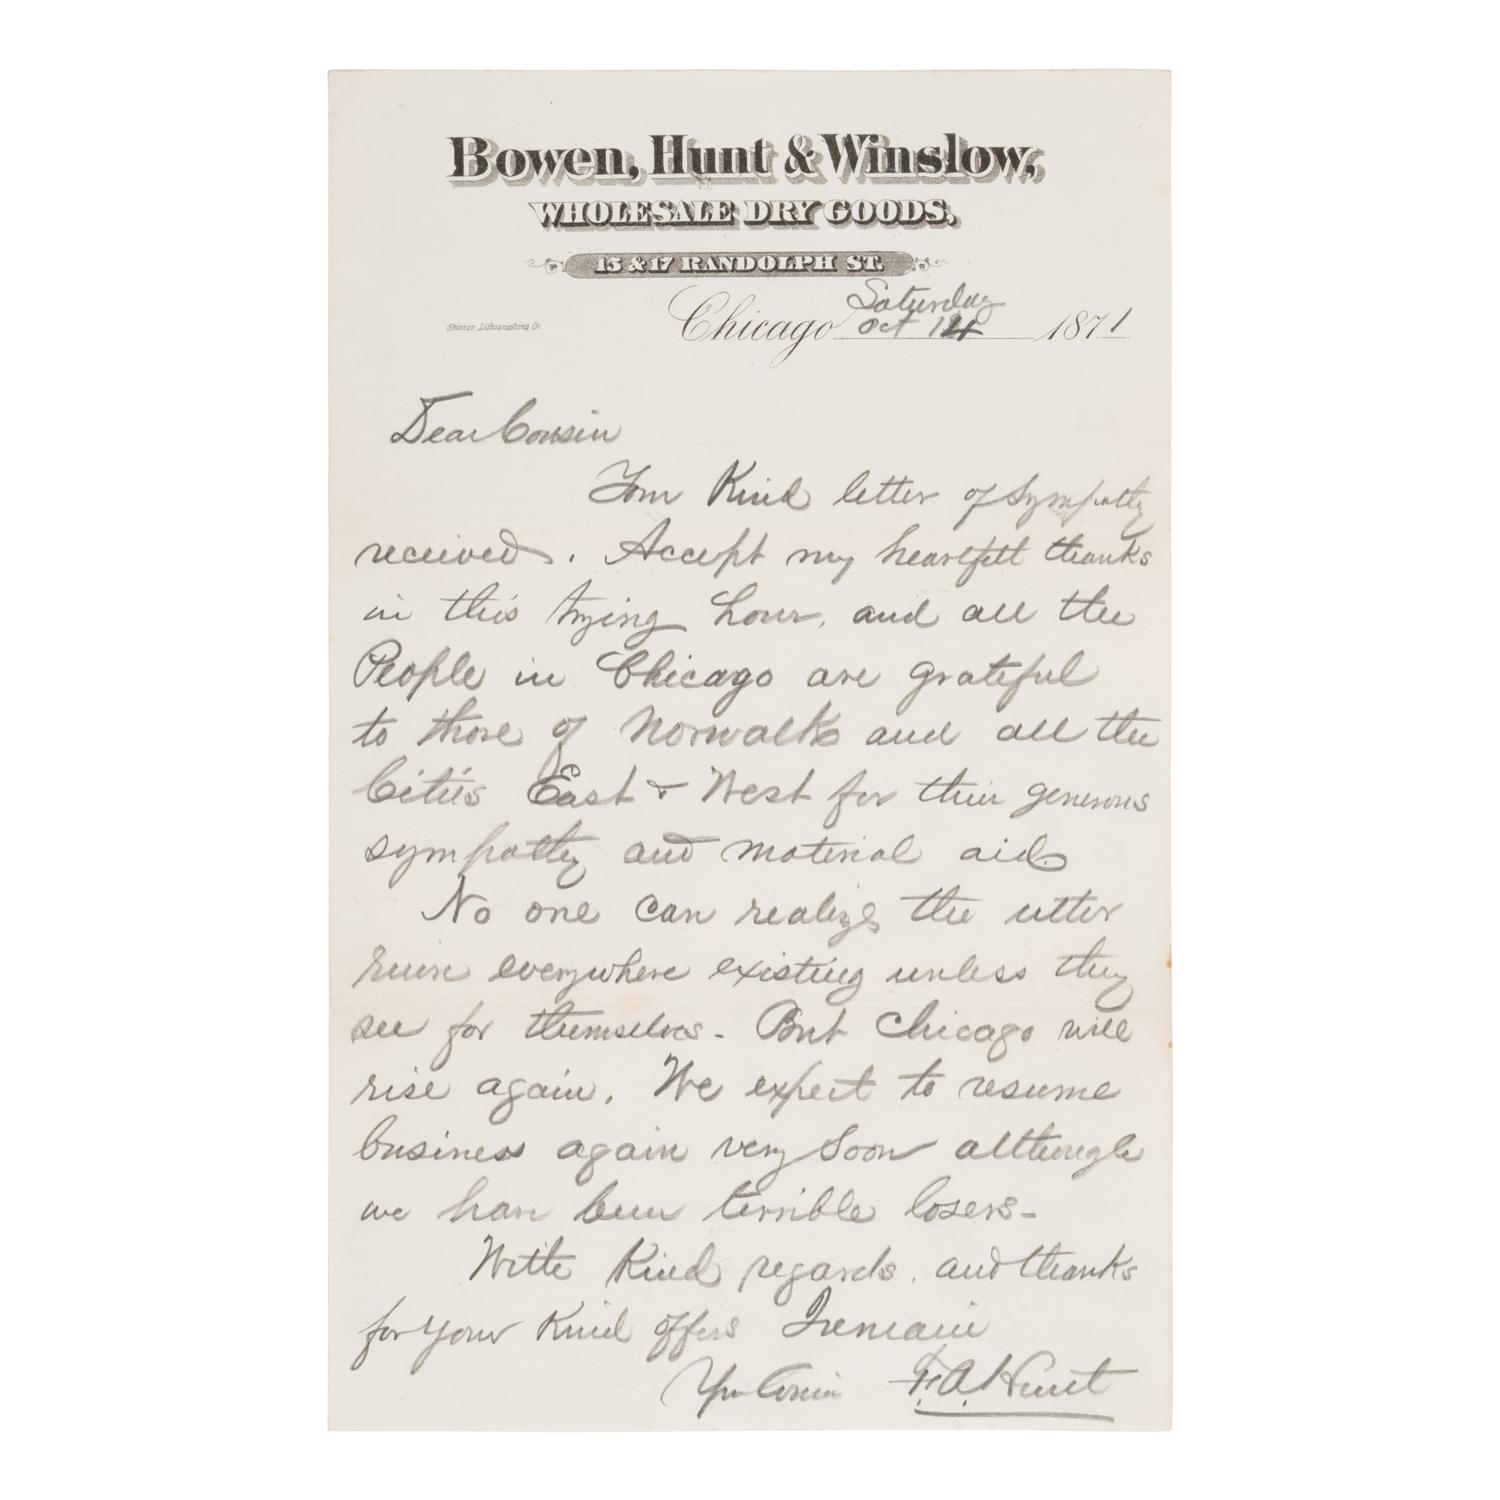 Bowen, Hunt & Winslow,
WHOLESALE DRY GOODS,
15 & 17 RANDOLPH ST.
Saturday
Chicago Oct 14 1871
Lithographing Co.
Dear Cousin
Your Kind letter of Sympathy
received. Accept my heartfelt thanks
in this trying hour, and all the
People in Chicago are grateful
to those of Norwalk and all the
Cities East & West for their generous
sympathy and material aid
No one can realize the utter
ruin everywhere existing unless they
see for themselves - But Chicago will
rise again. We expect to resume
business again very Soon although
we have been terrible losers -
With Kind regards, and thanks
for your Kind offers I remain
Your Cousin A. Hunt